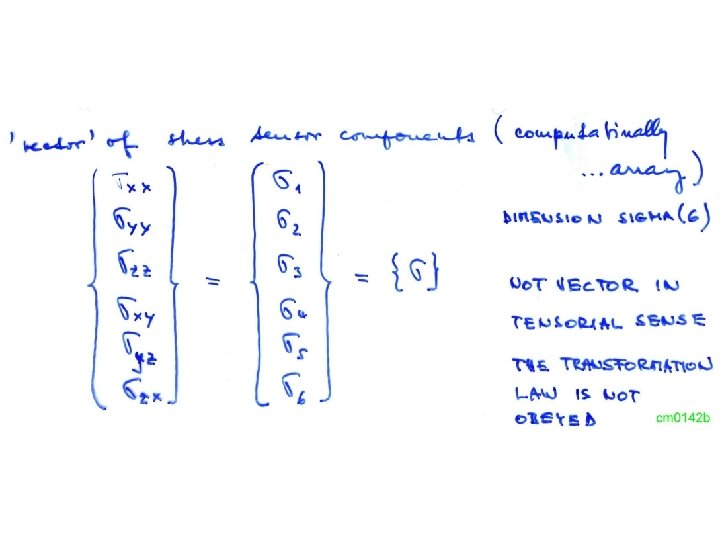 'vector' of stress tensor components (computationally
...array)
{σxx σyy σzz σxy σyz σzx} = {σ1 σ2 σ3 σ4 σ5 σ6} = {σ}
DIMENSION SIGMA(6)
NOT VECTOR IN
TENSORIAL SENSE
THE TRANSFORMATION
LAW IS NOT
OBEYED
cm0142b